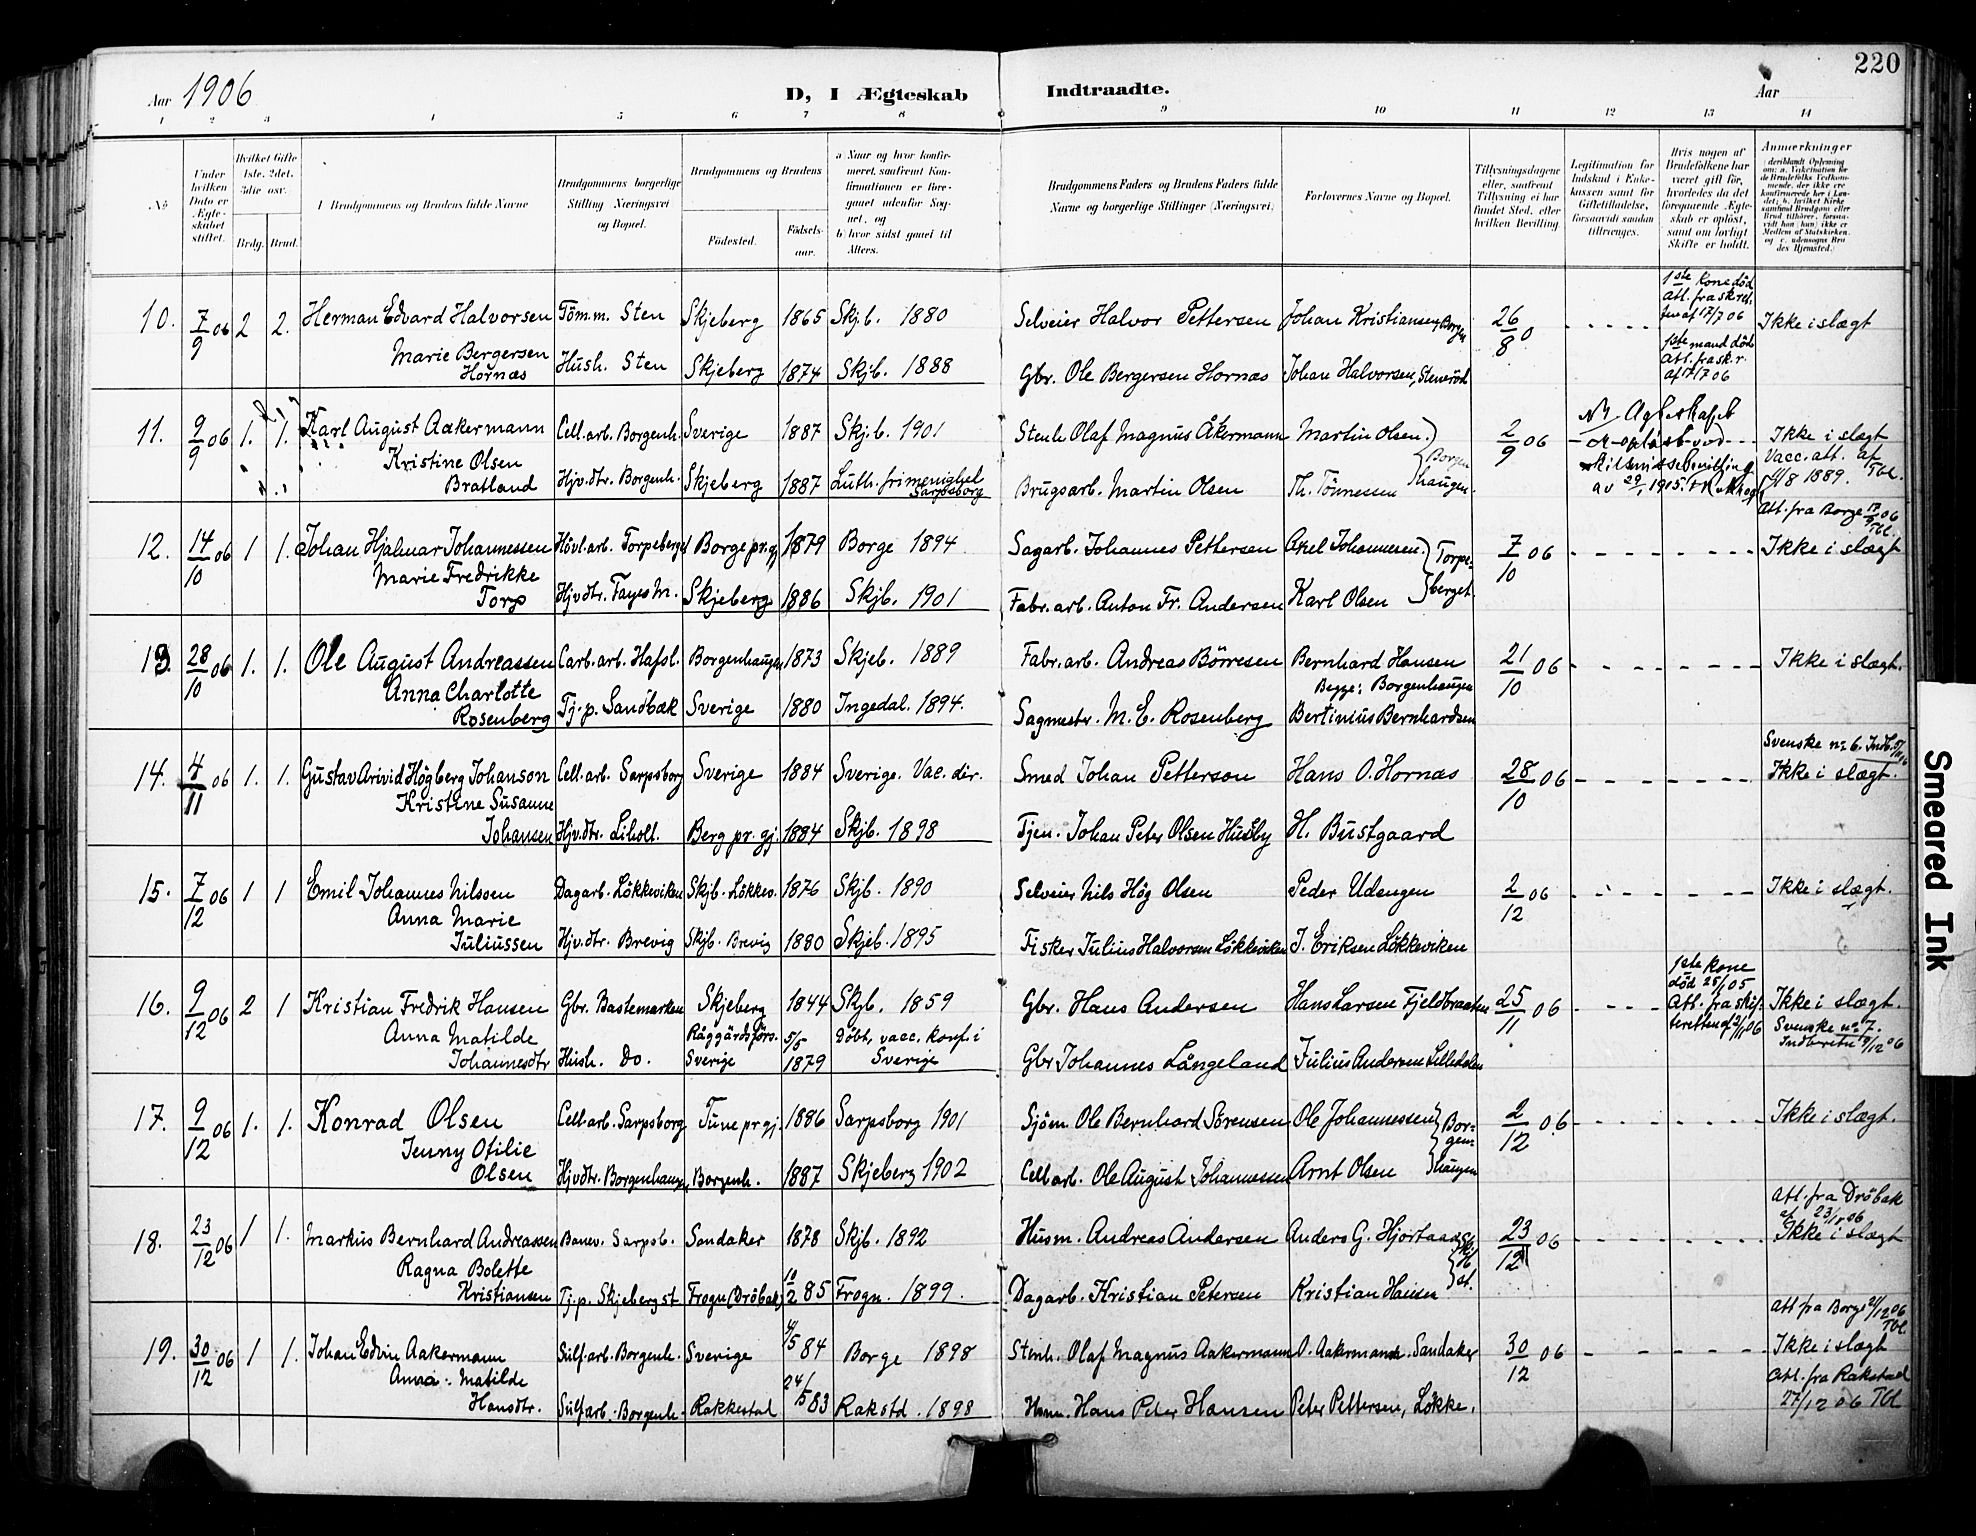 220
Aar 1906
D, I Ægteskab Indtraadte.
Aar
1 2 3 4 5 6 7 8 9 10 11 12 13 14
No
Under hvilken Dato er Ægteskabet stiftet.
Hvilket Gifte 1ste. 2det. 3die osv.
Brdg. Brud.
Brudgommens og Brudens fulde Navne
Brudgommens borgerlige Stilling Næringsvei og Bopæl.
Brudgommens og Brudens
Fødested. Fødselsaar.
a Naar og hvor konfirmeret, saafremt Konfirmationen er foregaaet udenfor Sognet, og
b) hvor sidst gaaet til Alters.
Brudgommens Faders og Brudens Faders fulde Navne og borgerlige Stillinger (Næringsvei)
Forlovernes Navne og Bopæl.
Tillysningsdagene eller, saafremt Tillysning ei har fundet Sted, efter hvilken Bevilling
Legitimation for Indskud i Enkekassen samt for Giftetilladelse, forsaavidt saadan tiltrænges.
Hvis nogen af Brudefolkene har været gift før, hvorledes da det foregaaende Ægteskab er opløst, samt om lovligt Skifte er holdt.
Anmerkninger
10. 7/9 06 2 2. Herman Edvard Halvorsen Tömm. Sten Skjeberg 1865 Skjb. 1880 Selveier Halvor Pettersen Johan Kristiansen, Borgen 26/8 0 1ste kone död Att. fra skret. 17/7 06 Ikke i slægt
Marie Bergersen Hornæs Hush. Sten Skjeberg 1874 Skjb. 1888 Gbr. Ole Bergersen Hornæs Johan Halvorsen, Steneröd 1ste mand död Att. fra sk.r. af 17/7 06
11. 9/9 06 1. 1. Karl August Aakermann Cell.arb. Borgenh. Sverige 1887 Skjb. 1901 Stenh. Olaf Magnus Åkermann Martin Olsen. Borgenhaugen. 2/9 06 Ikke i slægt
Kristine Olsen Bratland Hjv.dtr. Borgenh. Skjeberg 1887 Luth. frimenighet Sarpsborg Brugsarb. Martin Olsen Th. Tönnessen av 29/1 1915. Vacc. att. af 11/8 1889.
Att. fra Borge 17/9 06
12. 14/10 06 1 1. Johan Hjalmar Johannessen Hövl.arb. Torpeberget Borge pr.gj. 1879 Borge 1894 Sagarb. Johannes Pettersen Axel Johannesen. Torpeberget 7/10 06 Ikke i slægt
Marie Fredrikke Torp Hjv.dtr. Fayes M. Skjeberg 1886 Skjb. 1901 Fabr. arb. Anton Fr. Andersen Karl Olsen
13. 28/10 06 1. 1. Ole August Andreassen Carb. arb. Hafsl. Borgenhaugen 1873 Skjeb. 1889 Fabr. arb. Andreas Börresen Bernhard Hansen 21/10 06 Ikke i slægt.
Begge: Borgenhaugen
Anna Charlotte Rosenberg Tj. p. Sandbæk Sverige 1880 Ingedal. 1894. Sagmestr. M. E. Rosenberg Bertinius Bernhardsen
14. 4/11 06 1. 1. Gustav Arivid Högberg Johanson Cell. arb. Sarpsborg Sverige 1884 Sverige. Vac. dir. Smed Johan Petterson Hans O. Hornæs 28/10 06 Svenske no 6. Ikke i slægt.
Kristine Susanne Johansen Hjv.dtr. Liholt. Berg pr. gj. 1884 Skjb. 1898 Tjen. Johan Peter Olsen Husby H. Bustgaard
15. 7/12 06 1 1 Emil Johannes Nilssen Dagarb. Lökkeviken Skjb. Lökkev. 1876 Skjb. 1890 Selveier Nils Hög Olsen Peder Udengen 2/12 06 Ikke i slægt.
Anna Marie Juliussen Hjv.dtr. Brevig Skjb. Brevig 1880 Skjeb. 1895 Fisker Julius Halvorsen Lökkeviken J. Eriksen Lökkeviken
16. 9/12 06 2 1 Kristian Fredrik Hansen Gbr. Bastemarken Skjeberg 1844 Skjb. 1859 Gbr. Hans Andersen Hans Larsen Fjeldbraaten 25/11 06 1ste kone död 25/1 05 Att. fra skifteretten af 2/11 06 Ikke i slægt.
Anna Matilde Johannesdtr Hush. Do. Råggärdsförs. Sverige 5/5 1879 Döbt, vacc. konf. i Sverige Gbr Johannes Långeland Julius Andersen Lilledalen Svenske no 7. Indberettet 9/12 06
17. 9/12 06 1. 1. Konrad Olsen Cell.arb. Sarpsborg Tune pr gj. 1886 Sarpsborg 1901 Sjöm. Ole Bernhard Sörensen Ole Johannessen Borgenhaugen 2/12 06 Ikke i slægt.
Jenny Otilie Olsen Hjv.dtr. Borgenhaugen Borgenh. 1887 Skjeberg 1902 Cell arb. Ole August Johannessen Arnt Olsen
Att. fra Dröbak af 23/11 06
18. 23/12 06 1 1. Markus Bernhard Andreassen Banev. Sarpsb. Sandaker 1878 Skjb. 1892 Husm. Andreas Andersen Anders G. Hjortaas 23/12 06 Ikke i slægt
Ragna Bolette Kristiansen Tj. p. Skjeberg st. Frogn (Dröbak) 10/2 85 Frogn. 1899. Dagarb. Kristian Petersen Kristian Hansen
Att fra Borge 21/12 06
19. 30/12 06 1 1. Johan Edvin Aakermann Sulf.arb. Borgenh. Sverige 4/5 84 Borge 1898 Stenh. Olaf Magnus Aakermann O. Aakermann. Sandaker 30/12 06 Ikke i slægt
Anna Matilde Hansdtr. Sulf arb. Borgenh. Rakkestad 24/5 83 Rakstd. 1898 Husm. Hans Peter Hansen Peter Pettersen, Lökke. Att. fra Rakstad 27/12 06 Tbl
Smeared Ink